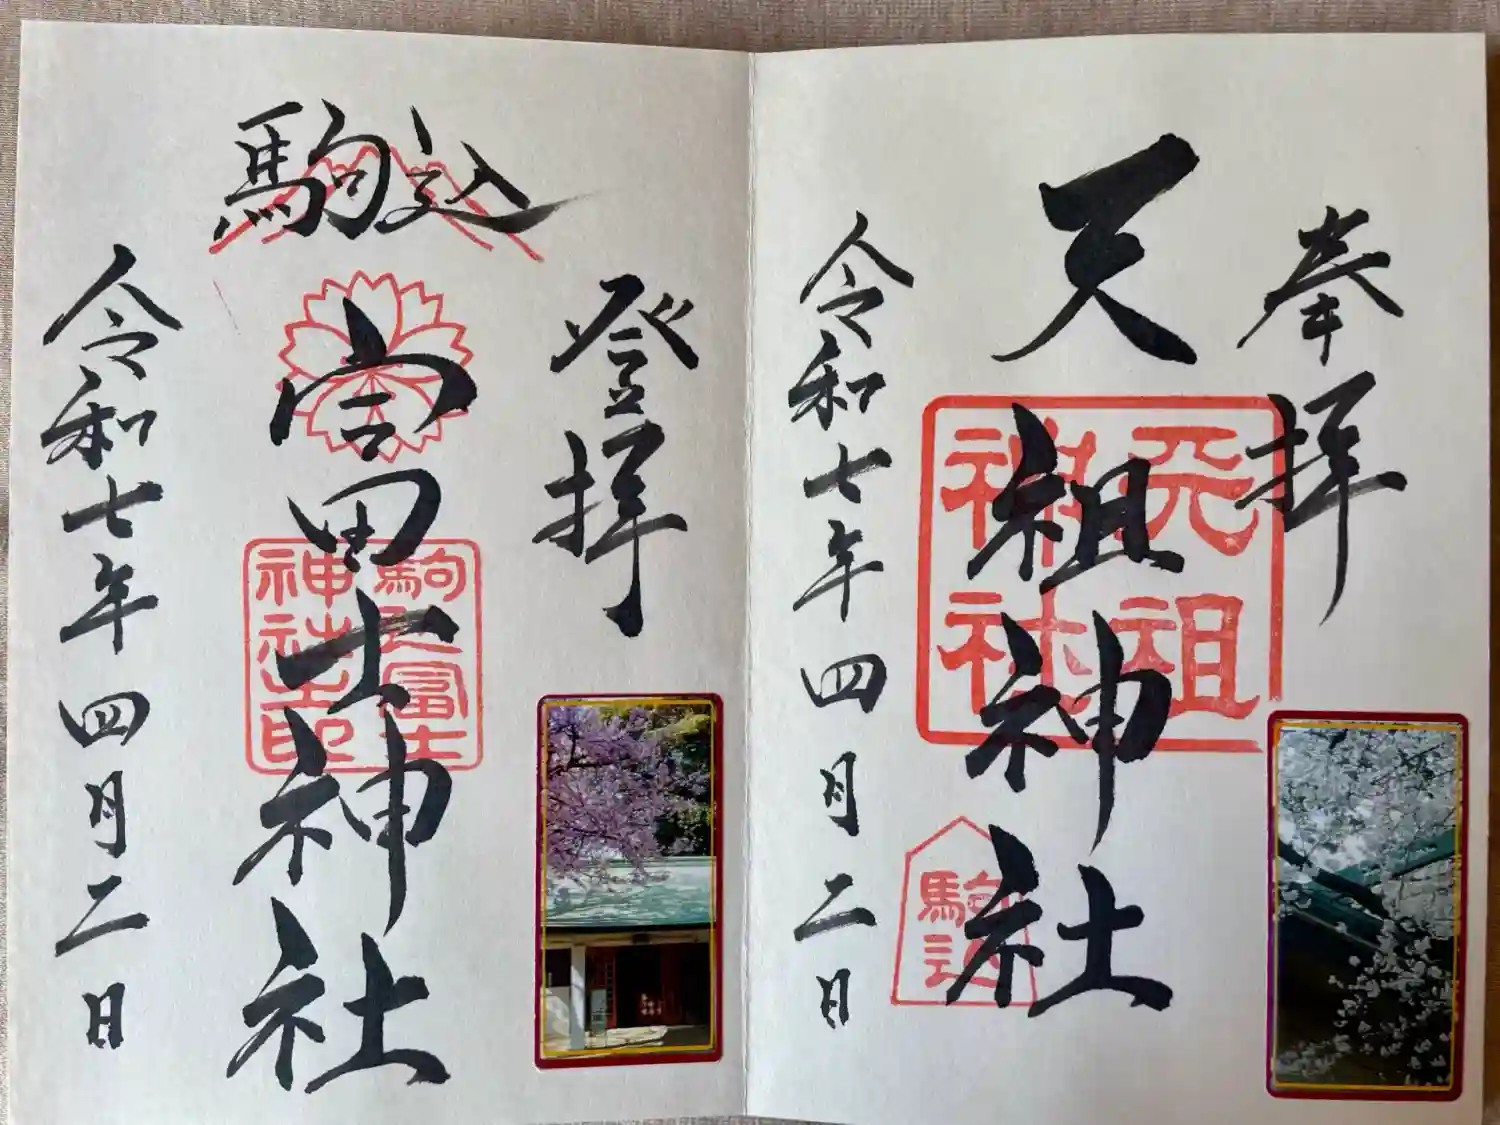 奉拝
天祖神社
令和七年四月二日
天祖
神社
駒込
登拝
駒込
富士神社
令和七年四月二日
駒込富士
神社之印